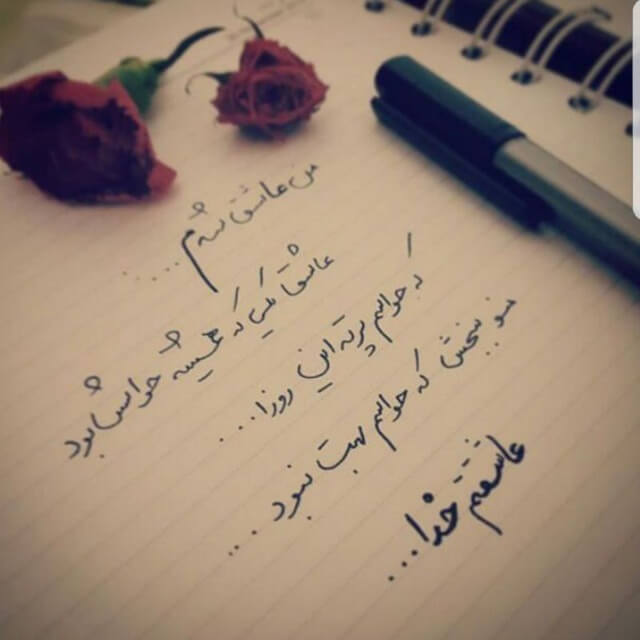 من عاشق شدم....
عاشق یکی که همیشه حواسش بود
که حواسم پرته این روزا...
منو ببخش که حواسم بهت نبود...
عاشقتم خدا...